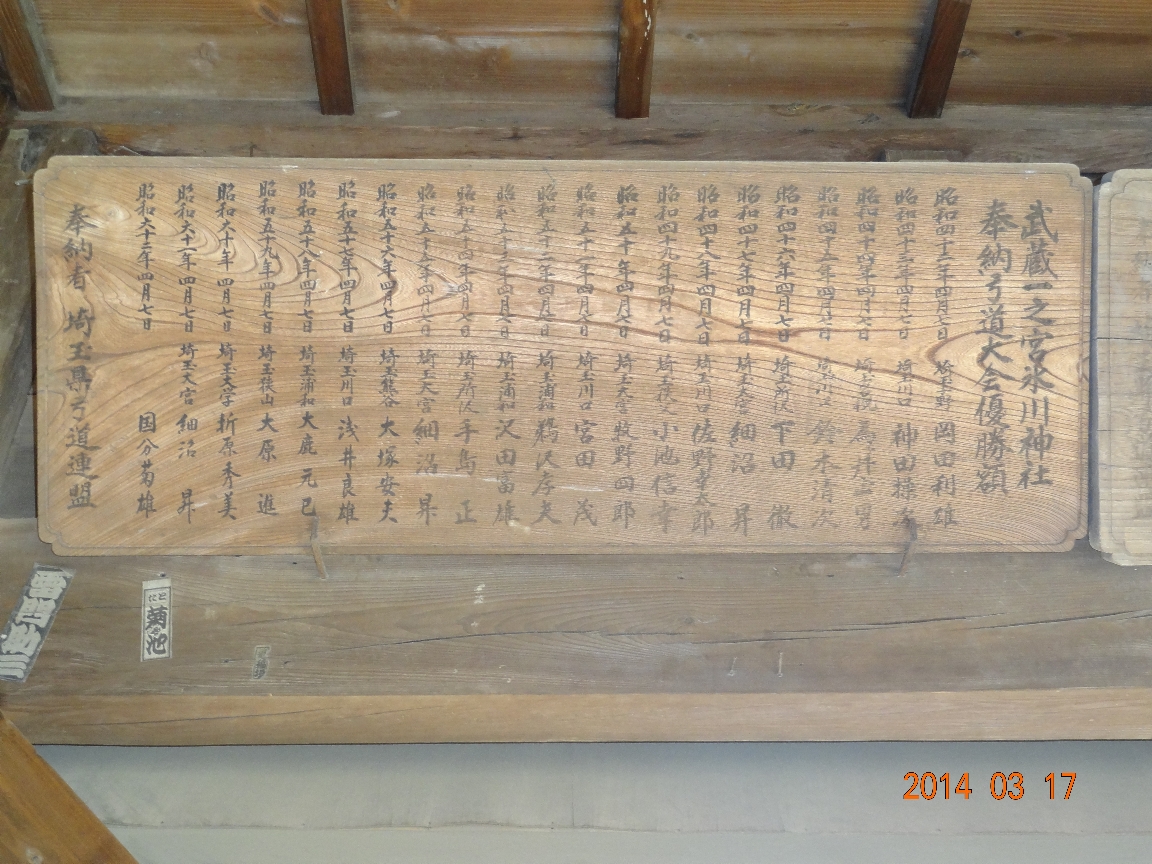 武蔵一之宮氷川神社
奉納弓道大会優勝額
昭和四十二年四月七日 岡田利雄
昭和四十三年四月七日 埼玉川口 神田操
昭和四十四年四月七日
昭和四十五年四月七日 鈴木清次
昭和四十六年四月七日 埼玉所沢 下田 徹
昭和四十七年四月七日 埼玉大宮 細沼 昇
昭和四十八年四月七日 埼玉川口 佐野幸太郎
昭和四十九年四月七日 埼玉秩父 小池信幸
昭和五十年四月七日 埼玉大宮 牧野四郎
昭和五十一年四月七日 埼玉川口 宮田 茂
昭和五十二年四月七日 埼玉浦和 鵜沢序夫
昭和五十三年四月七日 埼玉浦和 沢田富雄
昭和五十四年四月七日 埼玉所沢 手島 正
昭和五十五年四月七日 埼玉大宮 細沼 昇
昭和五十六年四月七日 埼玉熊谷 大塚安夫
昭和五十七年四月七日 埼玉川口 浅井良雄
昭和五十八年四月七日 埼玉浦和 大鹿元巳
昭和五十九年四月七日 埼玉狭山 大原 進
昭和六十年四月七日 埼玉大学 折原秀美
昭和六十一年四月七日 埼玉大宮 細沼 昇
昭和六十二年四月七日 国分菊雄
奉納者 埼玉県弓道連盟
菊池
2014 03 17